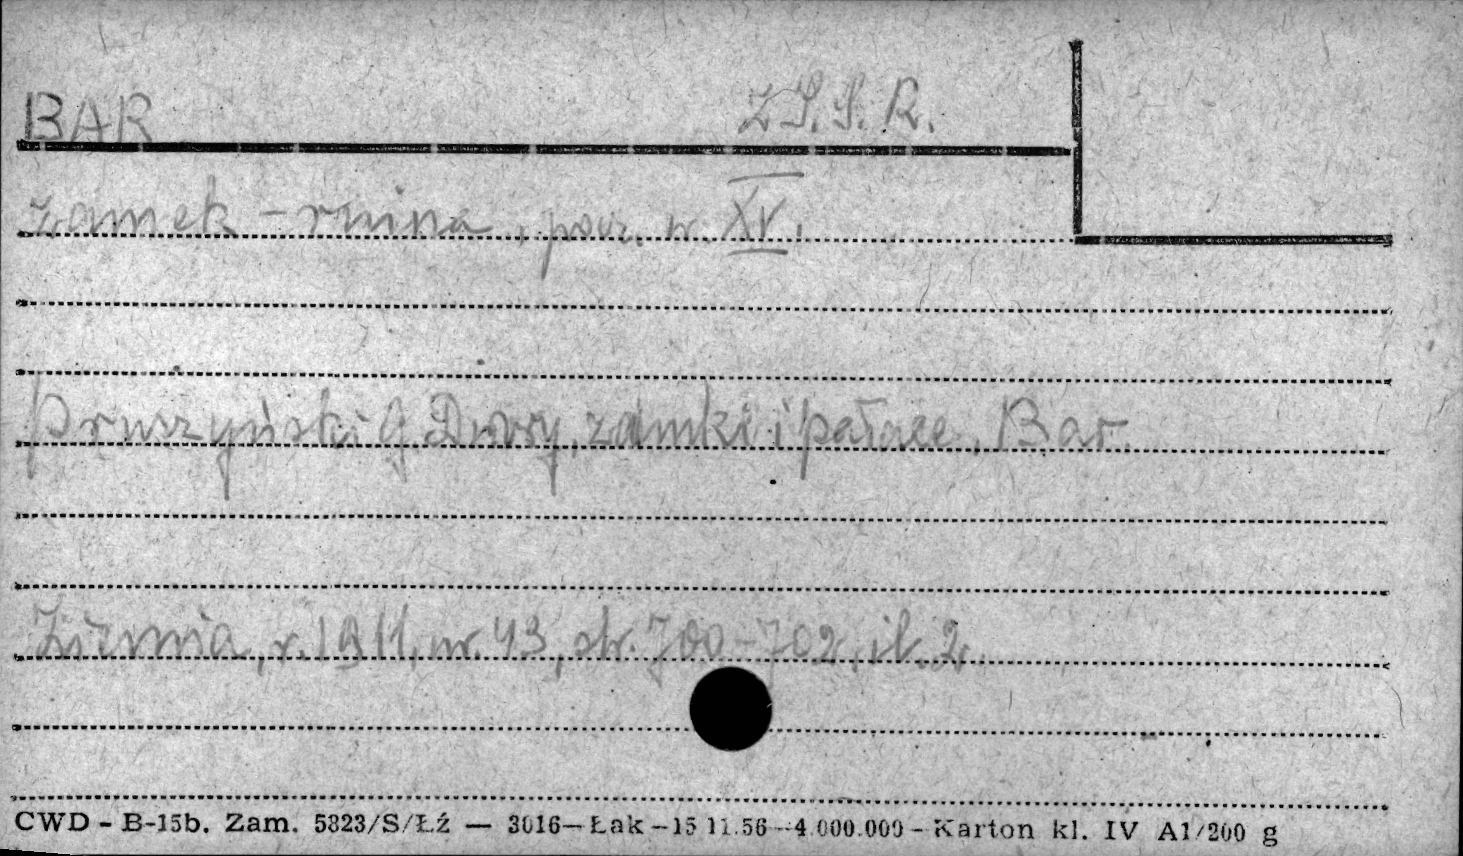 BAR Z.S.S.R.
zamek - ruina, pocz. w. XV.
Pruszyński G. Dwory, zamki i pałace, Bar.
Ziemia, r. 1911, nr. 43, str. 700-702, il. 2.
CWD - B-15b. Zam. 5823/S/Łź — 3016 — Łak - 15 11.56 - 4.000.000 - Karton kl. IV A1/200 g